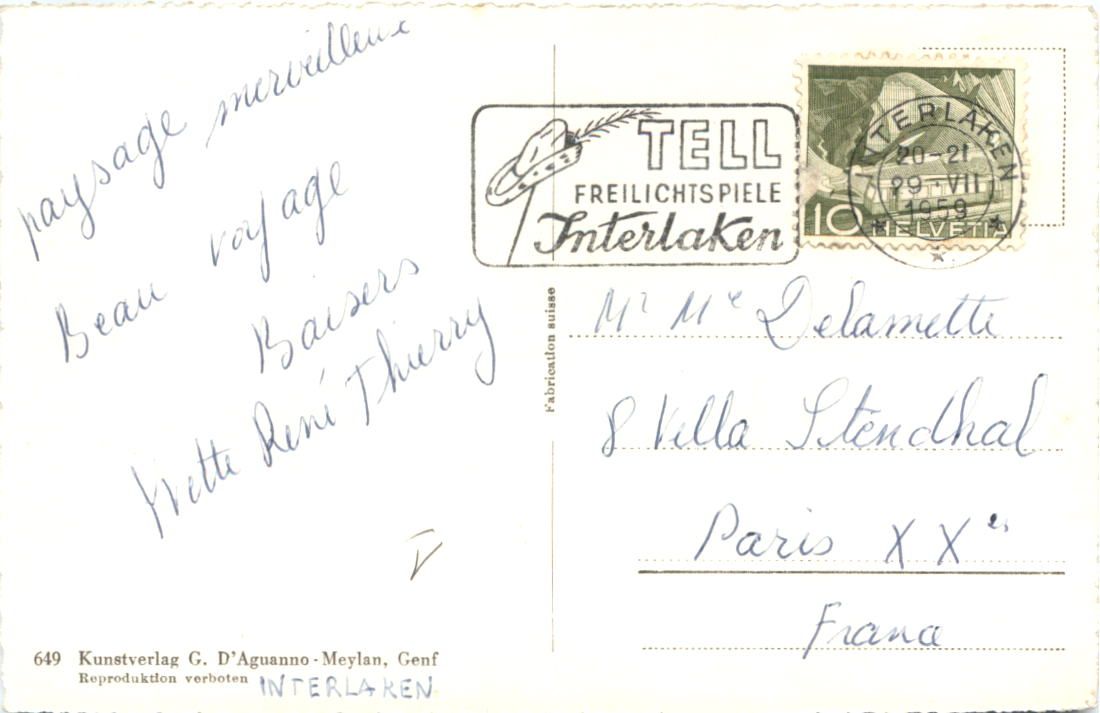 paysage merveilleux
Beau voyage
Baisers
Yvette René Thierry
V
649 Kunstverlag G. D'Aguanno - Meylan, Genf
Reproduktion verboten
INTERLAKEN
Fabrication suisse
TELL
FREILICHTSPIELE
Interlaken
INTERLAKEN
20-21
29.VII
1959
10 HELVETIA
Mr Me Delamette
8 Villa Stendhal
Paris XXes
France